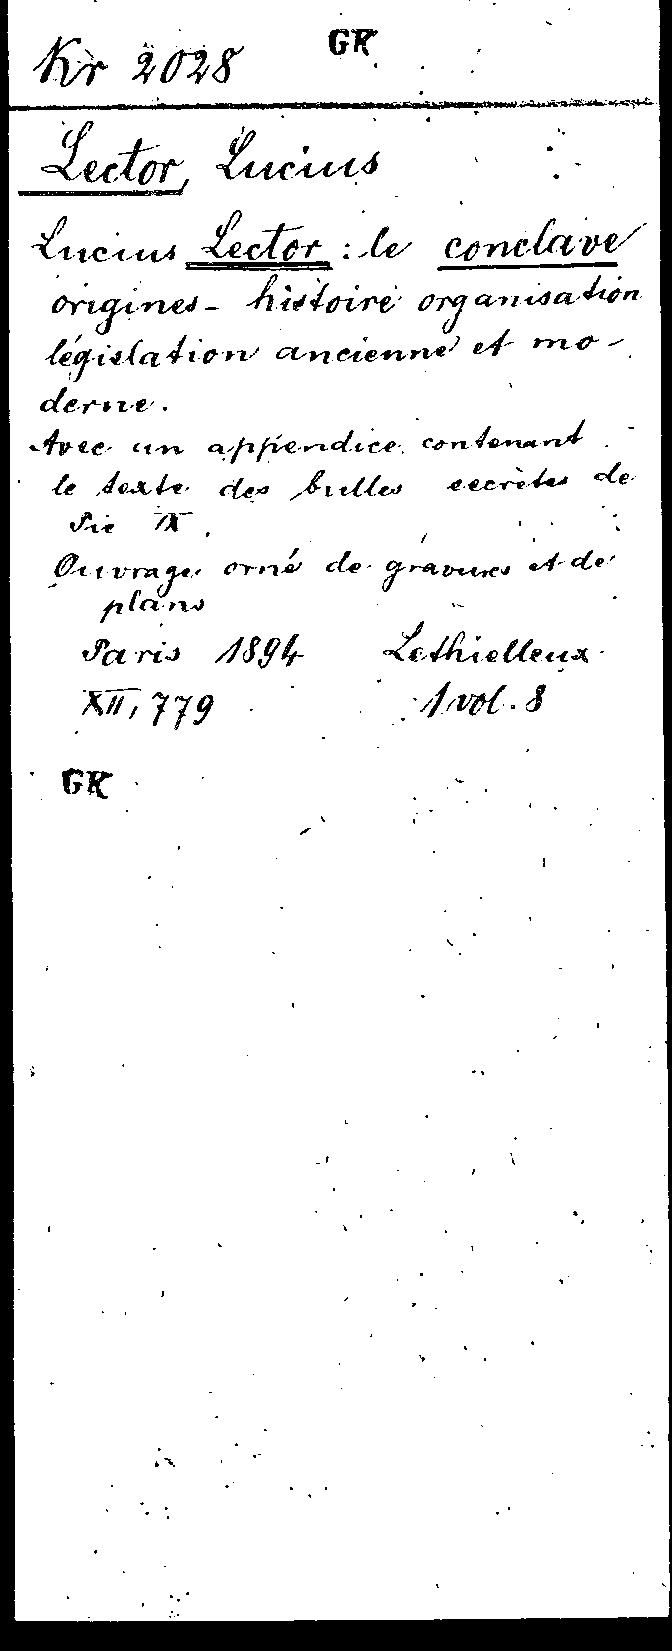 Kr 2028 GK
Lector, Lucius
Lucius Lector : le conclave
origines - histoire organisation
législation ancienne et mo-
derne.
Avec un appendice contenant
le texte des bulles secrètes de
Pie IX.
Ouvrage orné de gravures et de
plans
Paris 1894 Lethielleux
XII, 779 1 vol. 8
GK